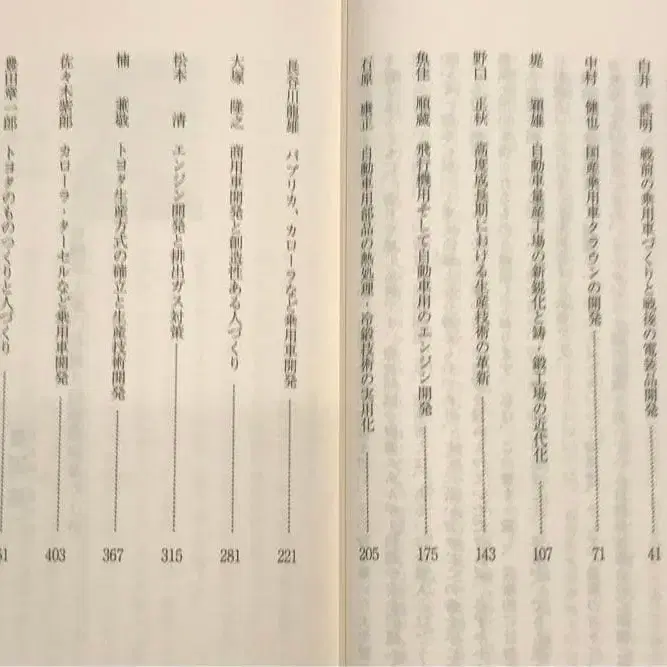 白井 武明 戦前の乗用車づくりと戦後の電装品開発 41
中村 健也 国産乗用車クラウンの開発 71
堤 穎雄 自動車量産工場の新鋭化と鋳・鍛工場の近代化 107
野口 正秋 高度成長期における生産技術の革新 143
魚住 順蔵 飛行機用そして自動車用のエンジン開発 175
石原 康正 自動車用部品の熱処理・冷鍛技術の実用化 205
長谷川龍雄 パブリカ、カローラなど乗用車開発 221
大塚 隆之 商用車開発と創造性ある人づくり 281
松本 清 エンジン開発と排出ガス対策 315
楠 兼敬 トヨタ生産方式の確立と生産技術開発 367
佐々木紫郎 カローラ・ターセルなど乗用車開発 403
豊田章一郎 トヨタのものづくりと人づくり